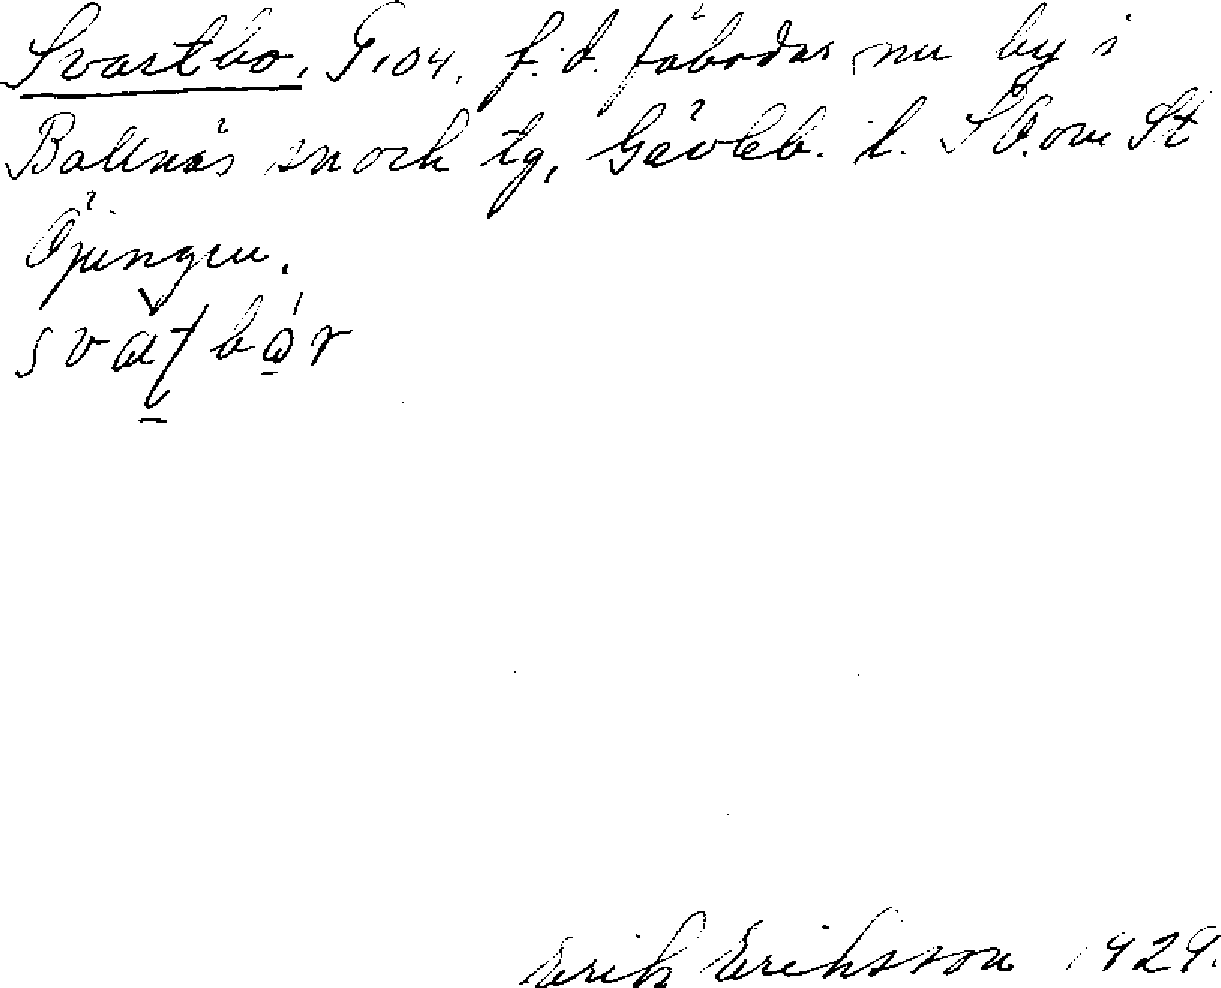 Svartbo. G.104. f. d. fäbodar nu by i
Bollnäs sn och tg, Gävleb. l. S Ö. om St
Öjungen.
Erik Eriksson 1929.